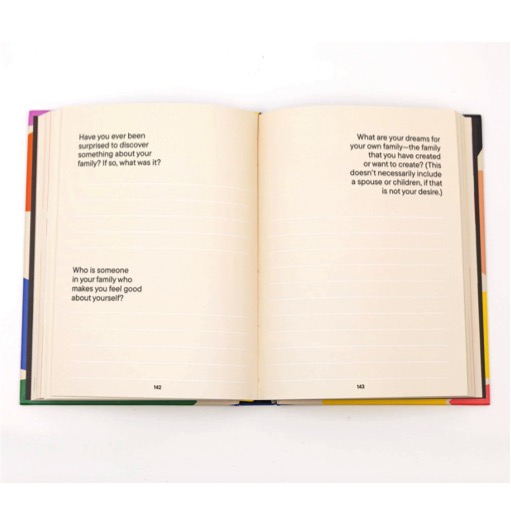 Have you ever been
surprised to discover
something about your
family? If so, what was it?
Who is someone
in your family who
makes you feel good
about yourself?
142
What are your dreams for
your own family—the family
that you have created
or want to create? (This
doesn't necessarily include
a spouse or children, if that
is not your desire.)
143